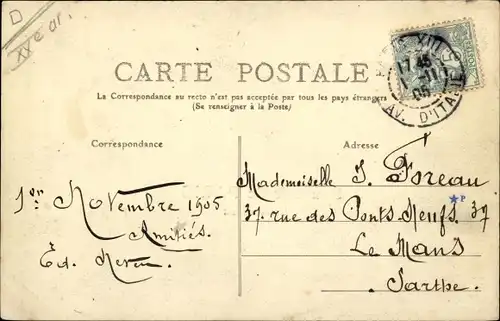 D
XXe ar.
CARTE POSTALE
La Correspondance au recto n'est pas acceptée par tous les pays étrangers
(Se renseigner à la Poste)
Correspondance
Adresse
1er Novembre 1905
Amitiés.
Ed.
Mademoiselle J. Foreau
37 rue des Ponts-Neufs 37
Le Mans
Sarthe.
PARIS XIII
17 45
1 -11
05
AV. D'ITALIE